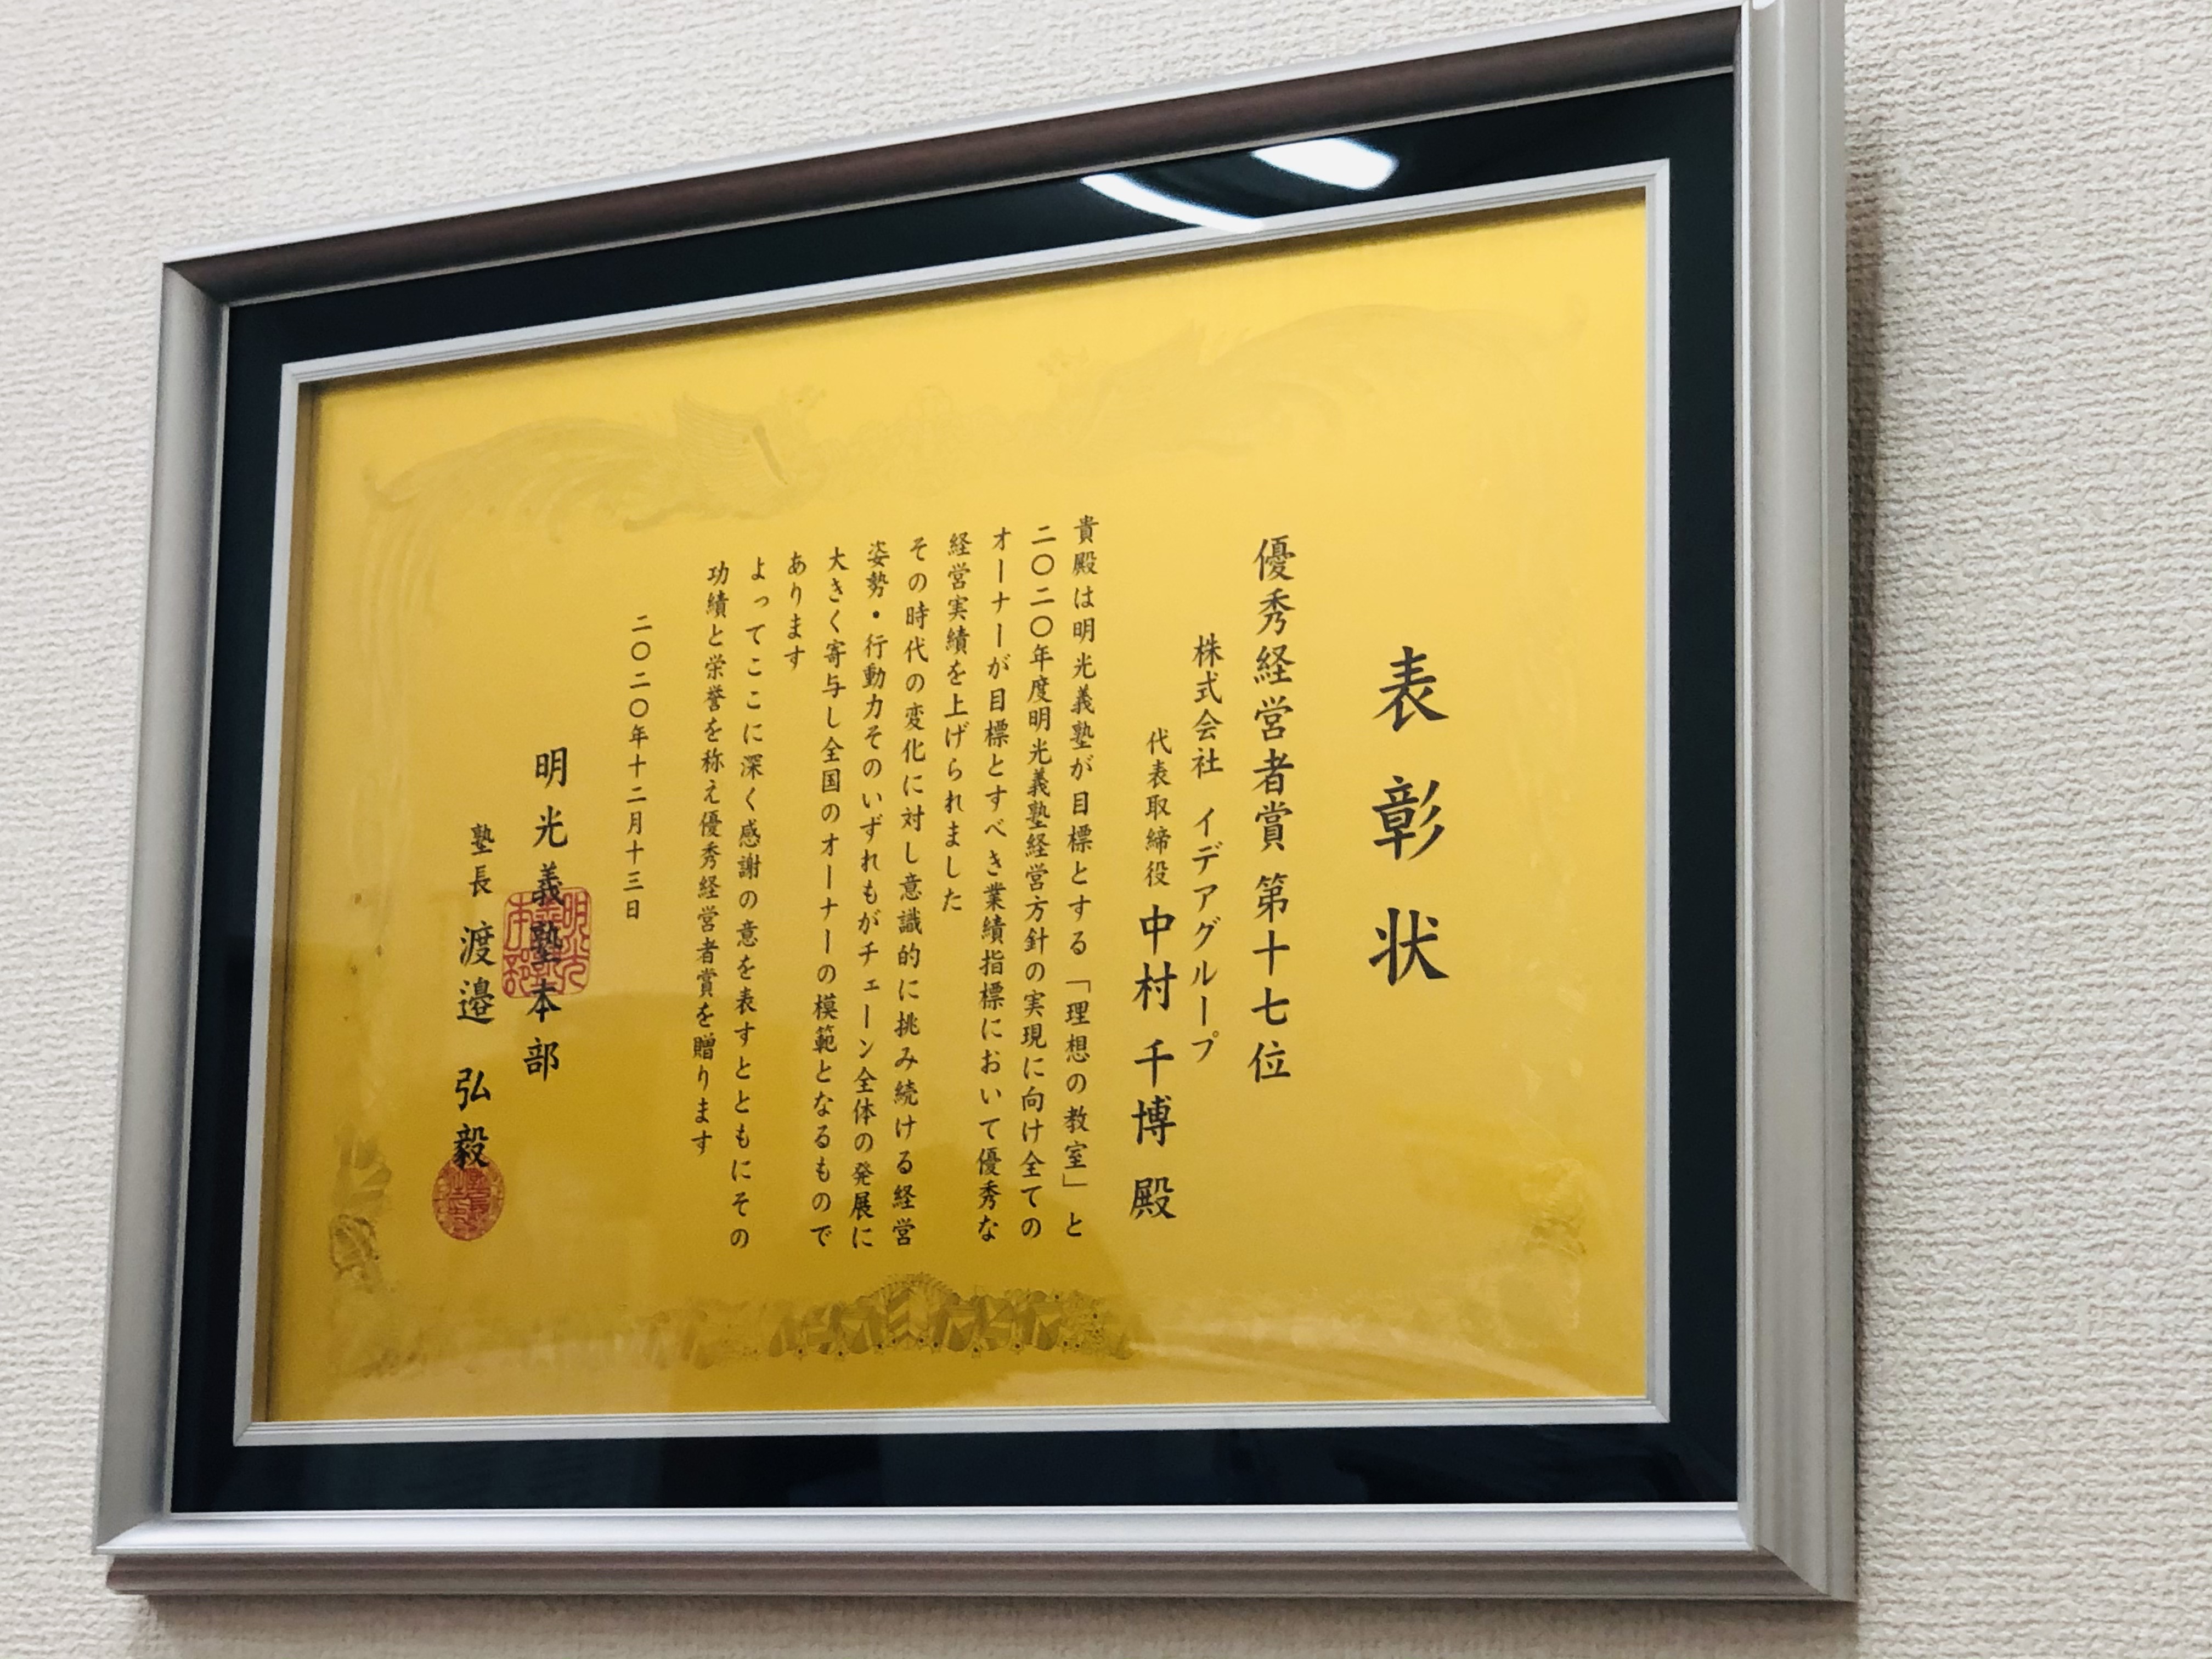 表彰状
優秀経営者賞 第十七位
株式会社 イデアグループ
代表取締役 中村 千博 殿
貴殿は明光義塾が目標とする「理想の教室」と
二〇二〇年度明光義塾経営方針の実現に向け全ての
オーナーが目標とすべき業績指標において優秀な
経営実績を上げられました
その時代の変化に対し意識的に挑み続ける経営
姿勢・行動力そのいずれもがチェーン全体の発展に
大きく寄与し全国のオーナーの模範となるもので
あります
よってここに深く感謝の意を表すとともにその
功績と栄誉を称え優秀経営者賞を贈ります
二〇二〇年十二月十三日
明光義塾本部
塾長 渡邉 弘毅